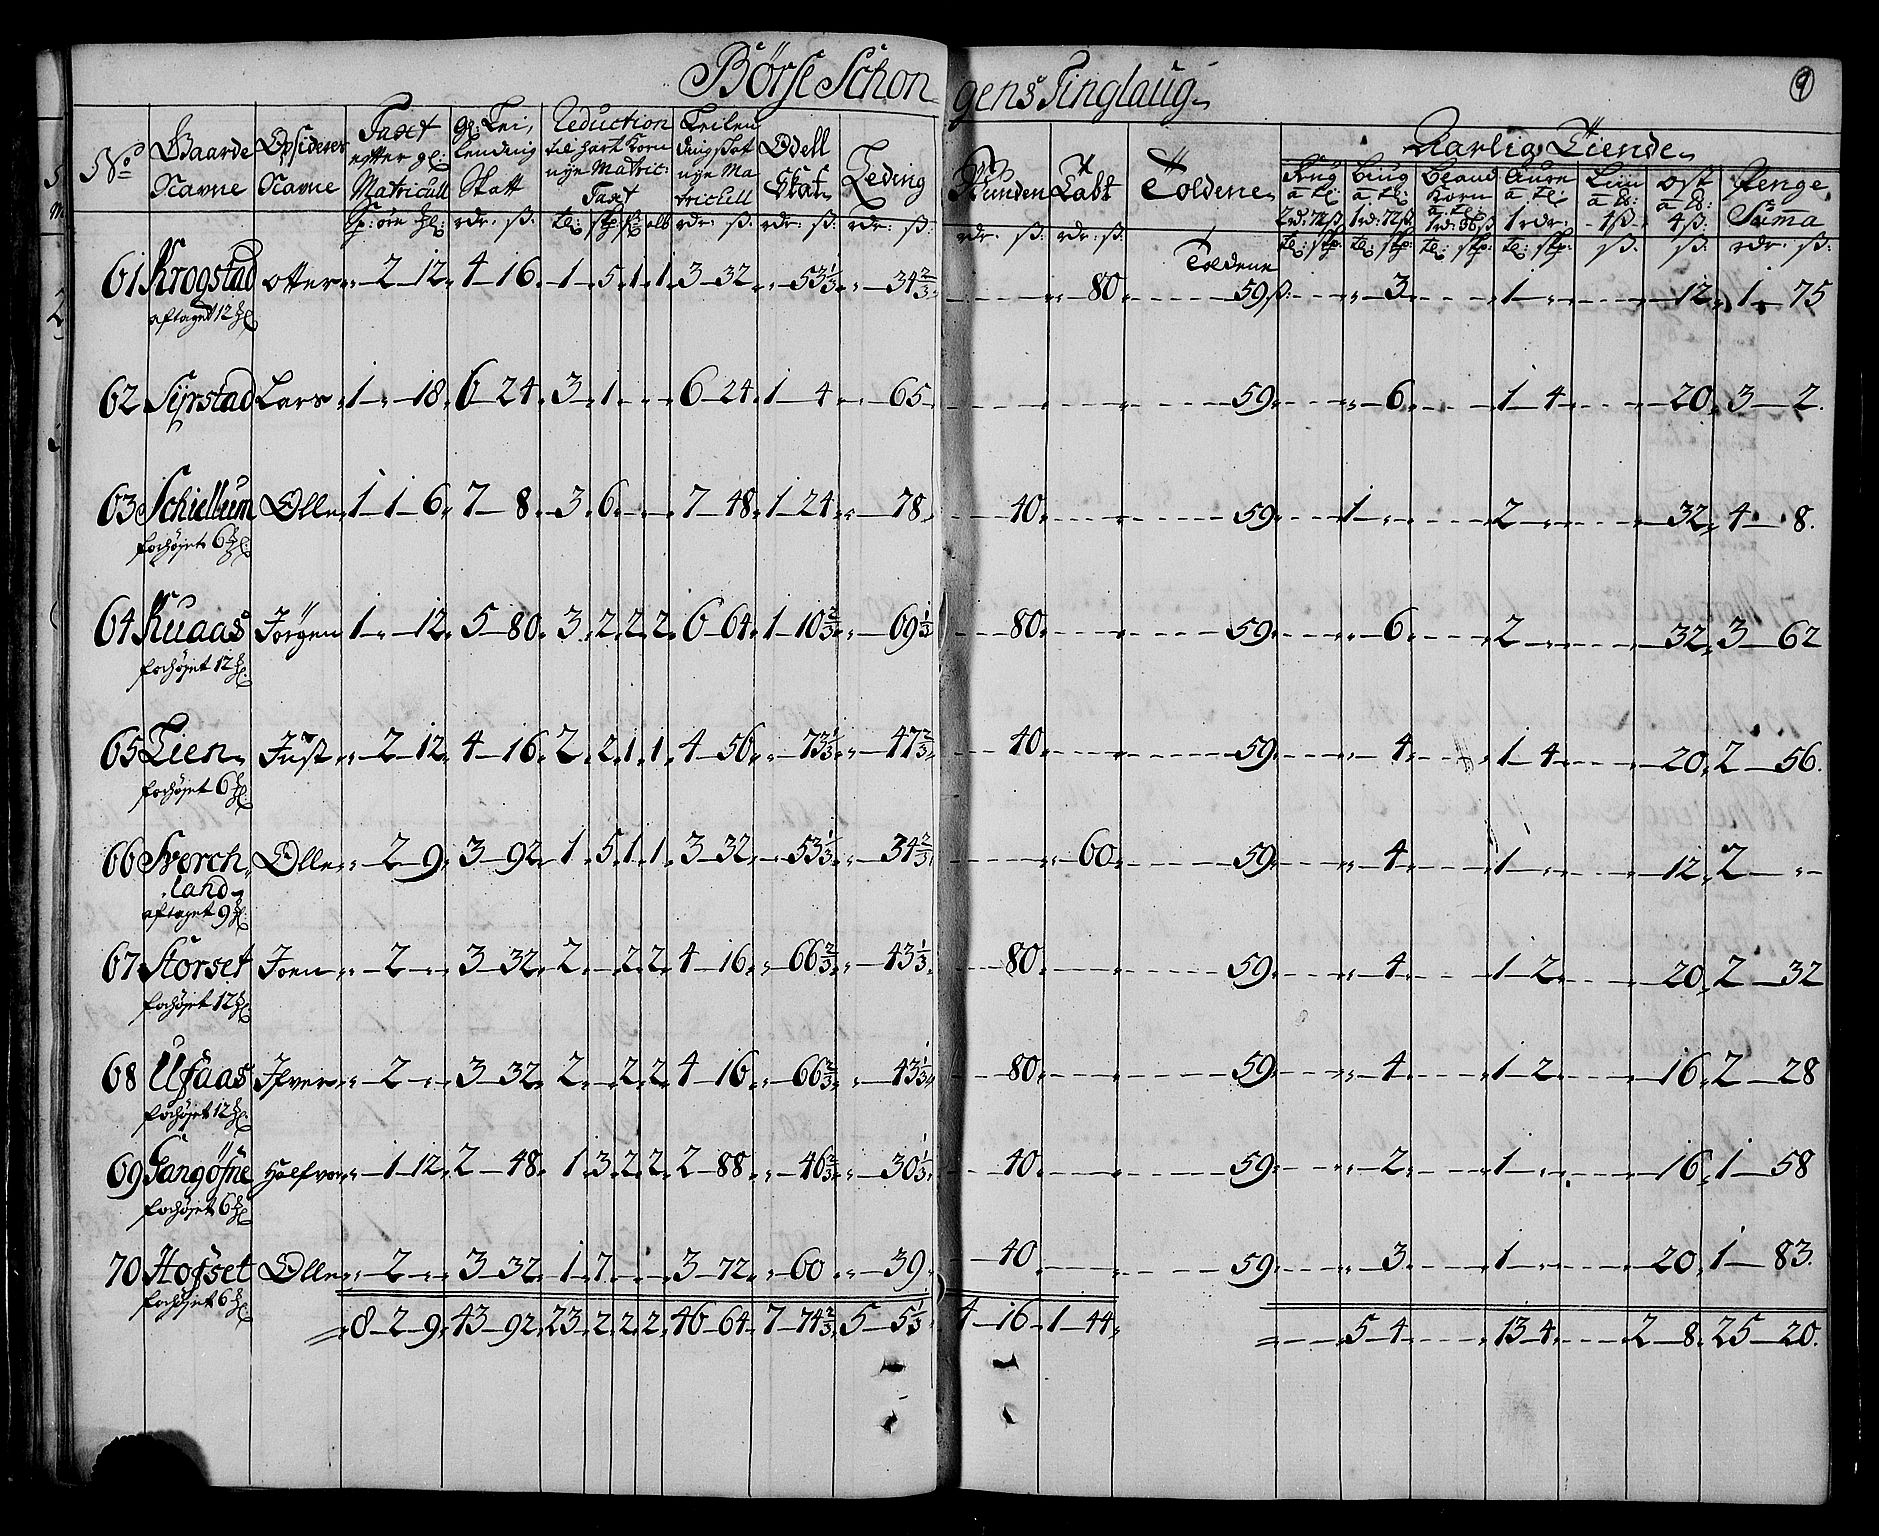 Börse Schon gens Tinglaug
9
No Gaarde Navne Opsiderer Navne Taxt epter gl: Matricull gl: Lei, lending Skatt Reduction til hart Korn nye Matric: Taxt Leilendingsskat nye Matricull Odell Skatt Leding Wunden Laxt Toldene Aarlig Tiende
Rug Bÿg Bland Korn ost Penge Suma
61 Krogstad otter 2 12 4 16 1 5 1 1 3 32 53⅓ 34⅔ 80 Toldene 59ß 3 1 12 1 75
aftaget 12
62 Sÿrstad Lars 1 18 6 24 3 1 6 24 1 4 65 59 6 1 4 20 3 2
63 Schiellum Olle 1 1 6 7 8 3 6 7 48 1 24 78 40 59 1 2 32 4 8
forhöjet 6
64 Kuaas Jörgen 1 12 5 80 3 2 2 2 6 64 1 10⅔ 69⅓ 80 59 6 2 32 3 62
forhöjet 12
65 Lien Just 2 12 4 16 2 2 1 1 4 56 73⅓ 47⅔ 40 59 4 1 4 20 2 56
forhöjet 6
66 Sverch Olle 2 9 3 92 1 5 1 1 3 32 53⅓ 34⅔ 60 59 4 1 12 2
land
aftaget 9
67 Storset Joen 2 3 32 2 2 2 4 16 66⅔ 43⅓ 80 59 4 1 2 20 2 32
forhöjet 12
68 Ufaas Ifver 2 3 32 2 2 2 4 16 66⅔ 43⅓ 80 59 4 1 2 16 2 28
forhöjet 12
69 Gangöfne Halfvor 1 12 2 48 1 3 2 2 2 88 46⅔ 30⅓ 40 59 2 1 16 1 58
forhöjet 6
70 Hofset Olle 2 3 32 1 7 3 72 60 39 40 59 3 1 20 1 83
forhöjet 6
8 2 9 43 92 23 2 2 2 46 64 7 74⅔ 5 5⅓ 4 16 1 44 5 4 13 4 2 8 25 20